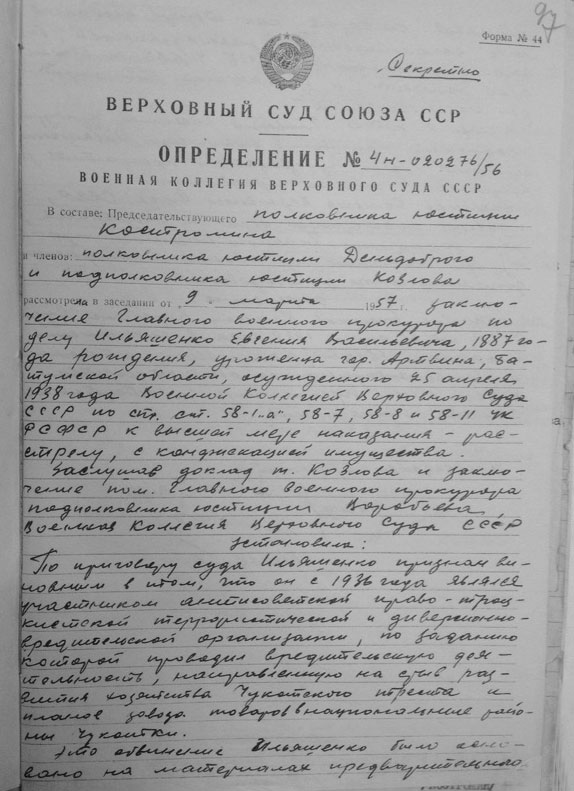 97
Форма № 44
Секретно
ВЕРХОВНЫЙ СУД СОЮЗА ССР
ОПРЕДЕЛЕНИЕ № 4н-020276/56
ВОЕННАЯ КОЛЛЕГИЯ ВЕРХОВНОГО СУДА СССР
В составе: Председательствующего полковника юстиции
Костромина
и членов: полковника юстиции Дендоброго
и подполковника юстиции Козлова
рассмотрела в заседании от 9 марта 1957 г. заклю-
чение Главного военного прокурора по
делу Ильяшенко Евгения Васильевича, 1887 го-
да рождения, уроженца гор. Артвина, Ба-
тумской области, осужденного 25 апреля
1938 года Военной Коллегией Верховного Суда
СССР по ст. ст. 58-1 „а", 58-7, 58-8 и 58-11 УК
РСФСР к высшей мере наказания - рас-
стрелу, с конфискацией имущества.
Заслушав доклад т. Козлова и заклю-
чение пом. Главного военного прокурора
подполковника юстиции Воробьева,
Военная Коллегия Верховного Суда СССР
установила:
По приговору суда Ильяшенко признан ви-
новным в том, что он с 1936 года являлся
участником антисоветской право-троц-
кистской террористической и диверсионно-
вредительской организации, по заданию
которой проводил вредительскую дея-
тельность, направленную на срыв раз-
вития хозяйства Чукотского треста и
планов завоза товаров в национальные райо-
ны Чукотки.
Это обвинение Ильяшенко было осно-
вано на материалах предварительного